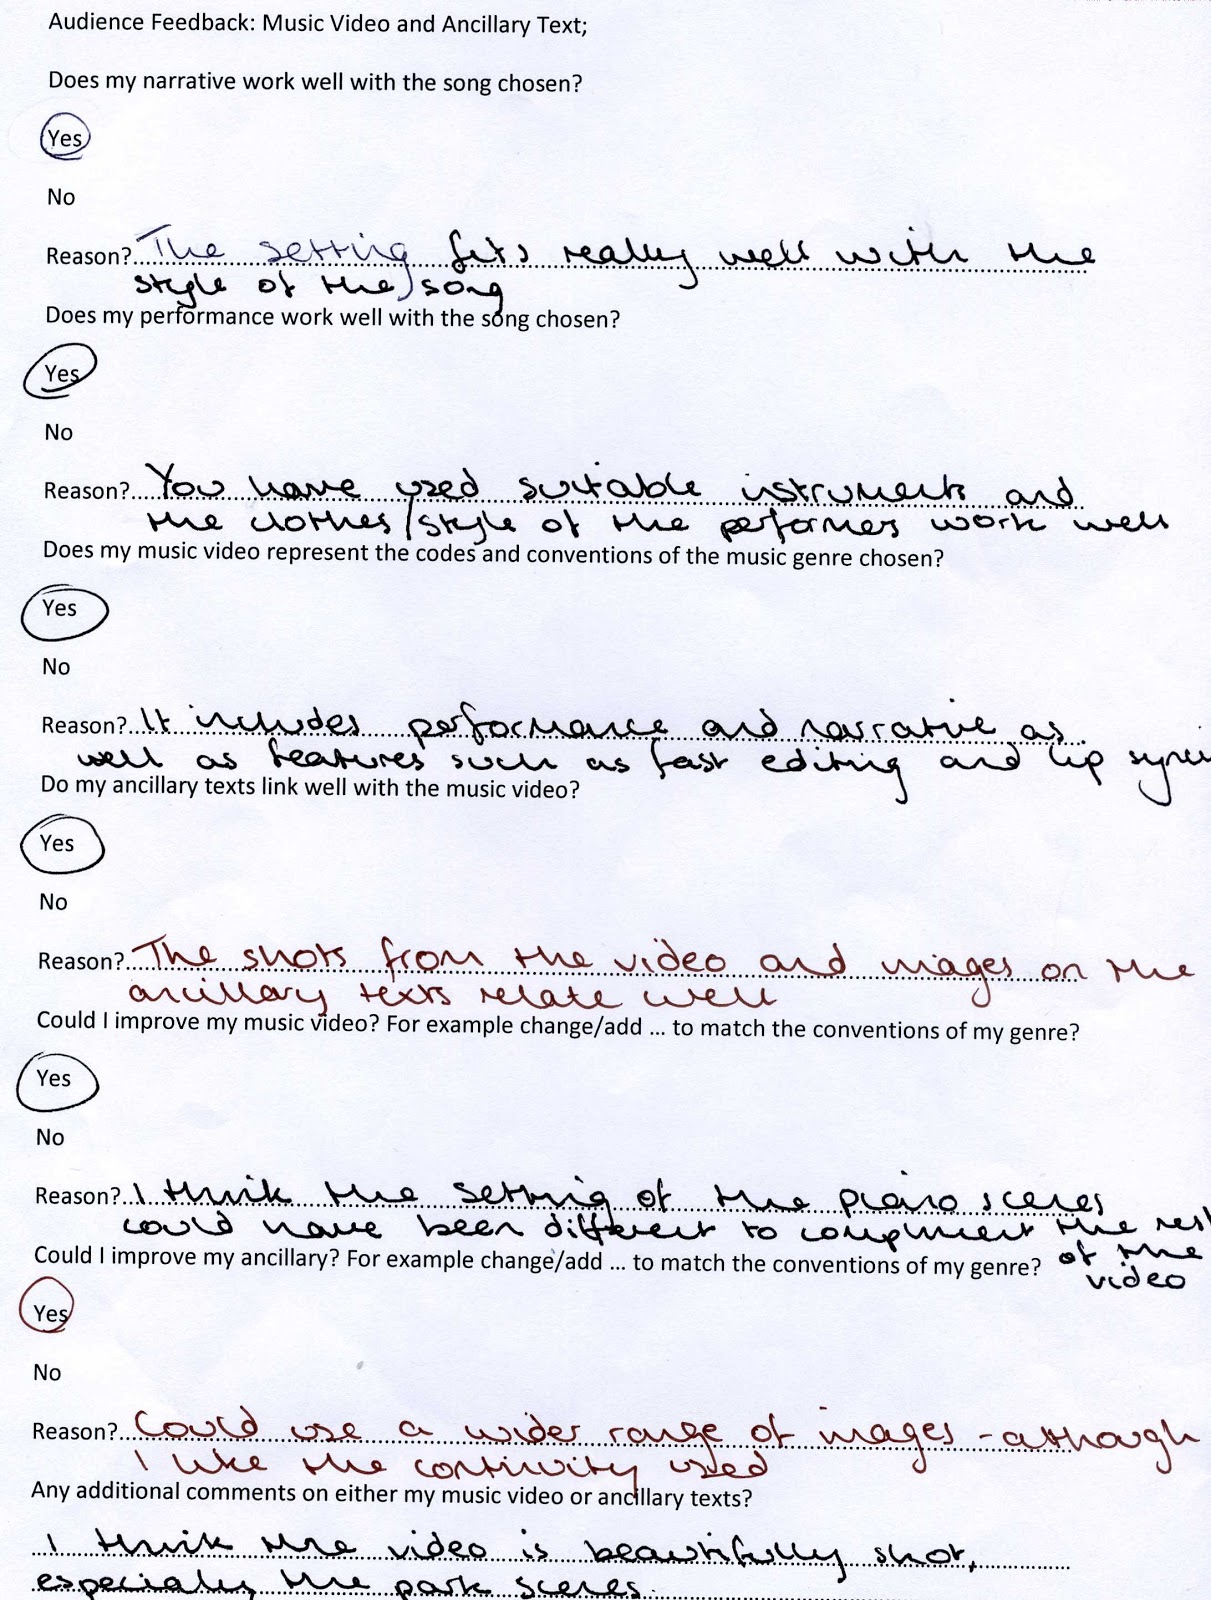 Audience Feedback: Music Video and Ancillary Text;
Does my narrative work well with the song chosen?
Yes
No
Reason? The setting fits really well with the
style of the song
Does my performance work well with the song chosen?
Yes
No
Reason? You have used suitable instruments and
the clothes/style of the performers work well
Does my music video represent the codes and conventions of the music genre chosen?
Yes
No
Reason? It includes performance and narrative as
well as features such as fast editing and lip
Do my ancillary texts link well with the music video?
Yes
No
Reason? The shots from the video and images on the
ancillary texts relate well
Could I improve my music video? For example change/add ... to match the conventions of my genre?
Yes
No
Reason? I think the setting of the piano scenes
could have been different to compliment the rest
of the
video
Could I improve my ancillary? For example change/add ... to match the conventions of my genre?
Yes
No
Reason? Could use a wider range of images - although
I like the continuity used
Any additional comments on either my music video or ancillary texts?
I think the video is beautifully shot,
especially the park scenes.